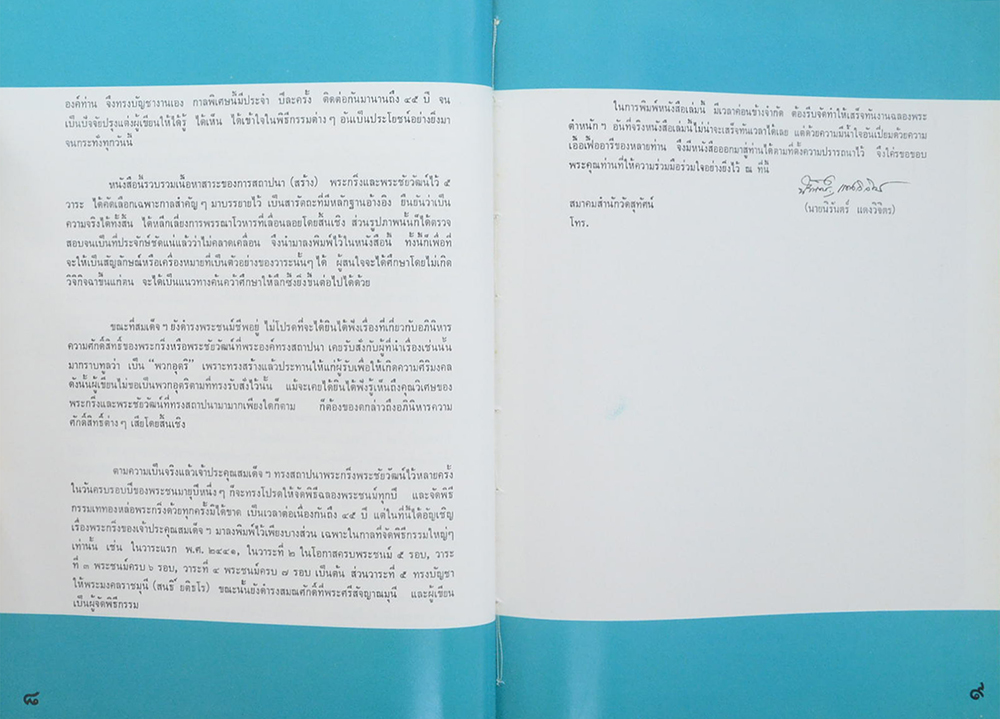 องค์ท่าน จึงทรงบัญชางานเอง กาลพิเศษนี้มีประจำ ปีละครั้ง ติดต่อกันมานานถึง ๔๕ ปี จน
เป็นปัจจัยปรุงแต่งผู้เขียนให้ได้รู้ ได้เห็น ได้เข้าใจในพิธีกรรมต่าง ๆ อันเป็นประโยชน์อย่างยิ่งมา
จนกระทั่งทุกวันนี้
หนังสือนี้รวบรวมเนื้อหาสาระของการสถาปนา (สร้าง) พระกริ่งและพระชัยวัฒน์ไว้ ๕
วาระ ได้คัดเลือกเฉพาะกาลสำคัญ ๆ มาบรรยายไว้ เป็นสารัตถะที่มีหลักฐานอ้างอิง ยืนยันว่าเป็น
ความจริงได้ทั้งสิ้น ได้หลีกเลี่ยงการพรรณาโวหารที่เลื่อนลอยโดยสิ้นเชิง ส่วนรูปภาพนั้นก็ได้ตรวจ
สอบจนเป็นที่ประจักษ์ชัดแน่แล้วว่าไม่คลาดเคลื่อน จึงนำมาลงพิมพ์ไว้ในหนังสือนี้ ทั้งนี้ก็เพื่อที่
จะให้เป็นสัญลักษณ์หรือเครื่องหมายที่เป็นตัวอย่างของวาระนั้นๆ ได้ ผู้สนใจจะได้ศึกษาโดยไม่เกิด
วิจิกิจฉาขึ้นแก่ตน จะได้เป็นแนวทางค้นคว้าศึกษาให้ลึกซึ้งยิ่งขึ้นต่อไปได้ด้วย
ขณะที่สมเด็จ ฯ ยังดำรงพระชนม์ชีพอยู่ ไม่โปรดที่จะได้ยินได้ฟังเรื่องที่เกี่ยวกับอภินิหาร
ความศักดิ์สิทธิ์ของพระกริ่งหรือพระชัยวัฒน์ที่พระองค์ทรงสถาปนา เคยรับสั่งกับผู้ที่นำเรื่องเช่นนั้น
มากราบทูลว่า เป็น "พวกอุตริ" เพราะทรงสร้างแล้วประทานให้แก่ผู้รับเพื่อให้เกิดความศิริมงคล
ดังนั้นผู้เขียนไม่ขอเป็นพวกอุตริตามที่ทรงรับสั่งไว้นั้น แม้จะเคยได้ยินได้ฟังรู้เห็นถึงคุณวิเศษของ
พระกริ่งและพระชัยวัฒน์ที่ทรงสถาปนามามากเพียงใดก็ตาม ก็ต้องของดกล่าวถึงอภินิหารความ
ศักดิ์สิทธิ์ต่าง ๆ เสียโดยสิ้นเชิง
ตามความเป็นจริงแล้วเจ้าประคุณสมเด็จ ฯ ทรงสถาปนาพระกริ่งพระชัยวัฒน์ไว้หลายครั้ง
ในวันครบรอบปีของพระชนมายุปีหนึ่ง ๆ ก็จะทรงโปรดให้จัดพิธีฉลองพระชนม์ทุกปี และจัดพิธี
กรรมเททองหล่อพระกริ่งด้วยทุกครั้งมิได้ขาด เป็นเวลาต่อเนื่องกันถึง ๔๕ ปี แต่ในที่นี้ได้อัญเชิญ
เรื่องพระกริ่งของเจ้าประคุณสมเด็จ ฯ มาลงพิมพ์ไว้เพียงบางส่วน เฉพาะในกาลที่จัดพิธีกรรมใหญ่ๆ
เท่านั้น เช่น ในวาระแรก พ.ศ. ๒๔๔๑, ในวาระที่ ๒ ในโอกาสครบพระชนม์ ๕ รอบ, วาระ
ที่ ๓ พระชนม์ครบ ๖ รอบ, วาระที่ ๔ พระชนม์ครบ ๗ รอบ เป็นต้น ส่วนวาระที่ ๕ ทรงบัญชา
ให้พระมงคลราชมุนี (สนธิ์ ยติธโร) ขณะนั้นยังดำรงสมณศักดิ์ที่พระศรีสัจญาณมุนี และผู้เขียน
เป็นผู้จัดพิธีกรรม
๘
ในการพิมพ์หนังสือเล่มนี้ มีเวลาค่อนข้างจำกัด ต้องรีบจัดทำให้เสร็จทันงานฉลองพระ
ตำหนัก ฯ อันที่จริงหนังสือเล่มนี้ไม่น่าจะเสร็จทันเวลาได้เลย แต่ด้วยความมีน้ำใจอันเปี่ยมด้วยความ
เอื้อเฟื้ออารีของหลายท่าน จึงมีหนังสือออกมาสู่ท่านได้ตามที่ตั้งความปรารถนาไว้ จึงใคร่ขอขอบ
พระคุณท่านที่ให้ความร่วมมือร่วมใจอย่างยิ่งไว้ ณ ที่นี้
สมาคมสำนักวัดสุทัศน์
(นายนิรันตร์ แดงวิจิตร)
โทร.
๙